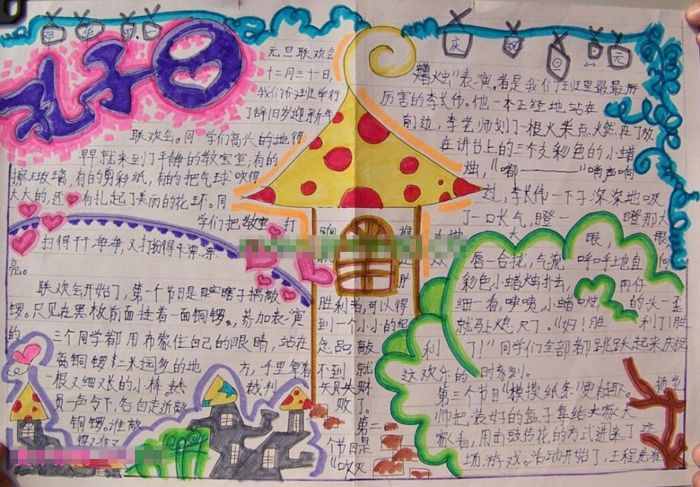 孔子日
庆 祝 元 旦
元旦联欢会
十二月三十日,
我们
了辞旧岁迎新年
联欢会。同学们高兴的地得
早就来到了平静的教室里,有的
擦玻璃,有的剪彩纸,有的把气球吹得
大大的,还有扎起了美丽的花环。同
学们把教室打
扫得干干净净,又打扮得漂漂
亮。
联欢会开始了,第一个节目是瞎子搞敲
锣。只见在黑板前面挂着一面铜锣。参加表演
的三个同学都用布蒙住自己的眼睛,站在
离铜锣十二米远多的地方,手里拿着
一根又细又长的小棒。裁判
员一声令下,各自走近敲
铜锣。谁敲
胜利者,可以得
到一个小小的纪
念品
不到就
失败
了。
第二
个节目是
“吹灭
蜡烛”表演,者是我们班里最最最历
厉害的李长伟。他一本正经地站在
前边,李艺师划了一根火柴点燃了放
在讲台上的三个支彩色的小蜡
烛,“嘟————”哨声响
过,李长伟一下子深深地吸
了一口大气,瞪一瞪那大
眼,
唇一合拢,气流呼呼地直向
彩色小蜡烛扑去,再仔
细一看,咦咦,小蜡烛的头一歪
就马上熄灭了。“好!胜利了!胜
利了!”同学们全部都跳跃起来庆祝
这欢乐的一时刻。
第三个节目“摸摸纸条”更精彩。杨老
师把装好的盒子拿给大家大
家看,用击鼓传花的方式进行了这
场游戏。活动开始了,王程